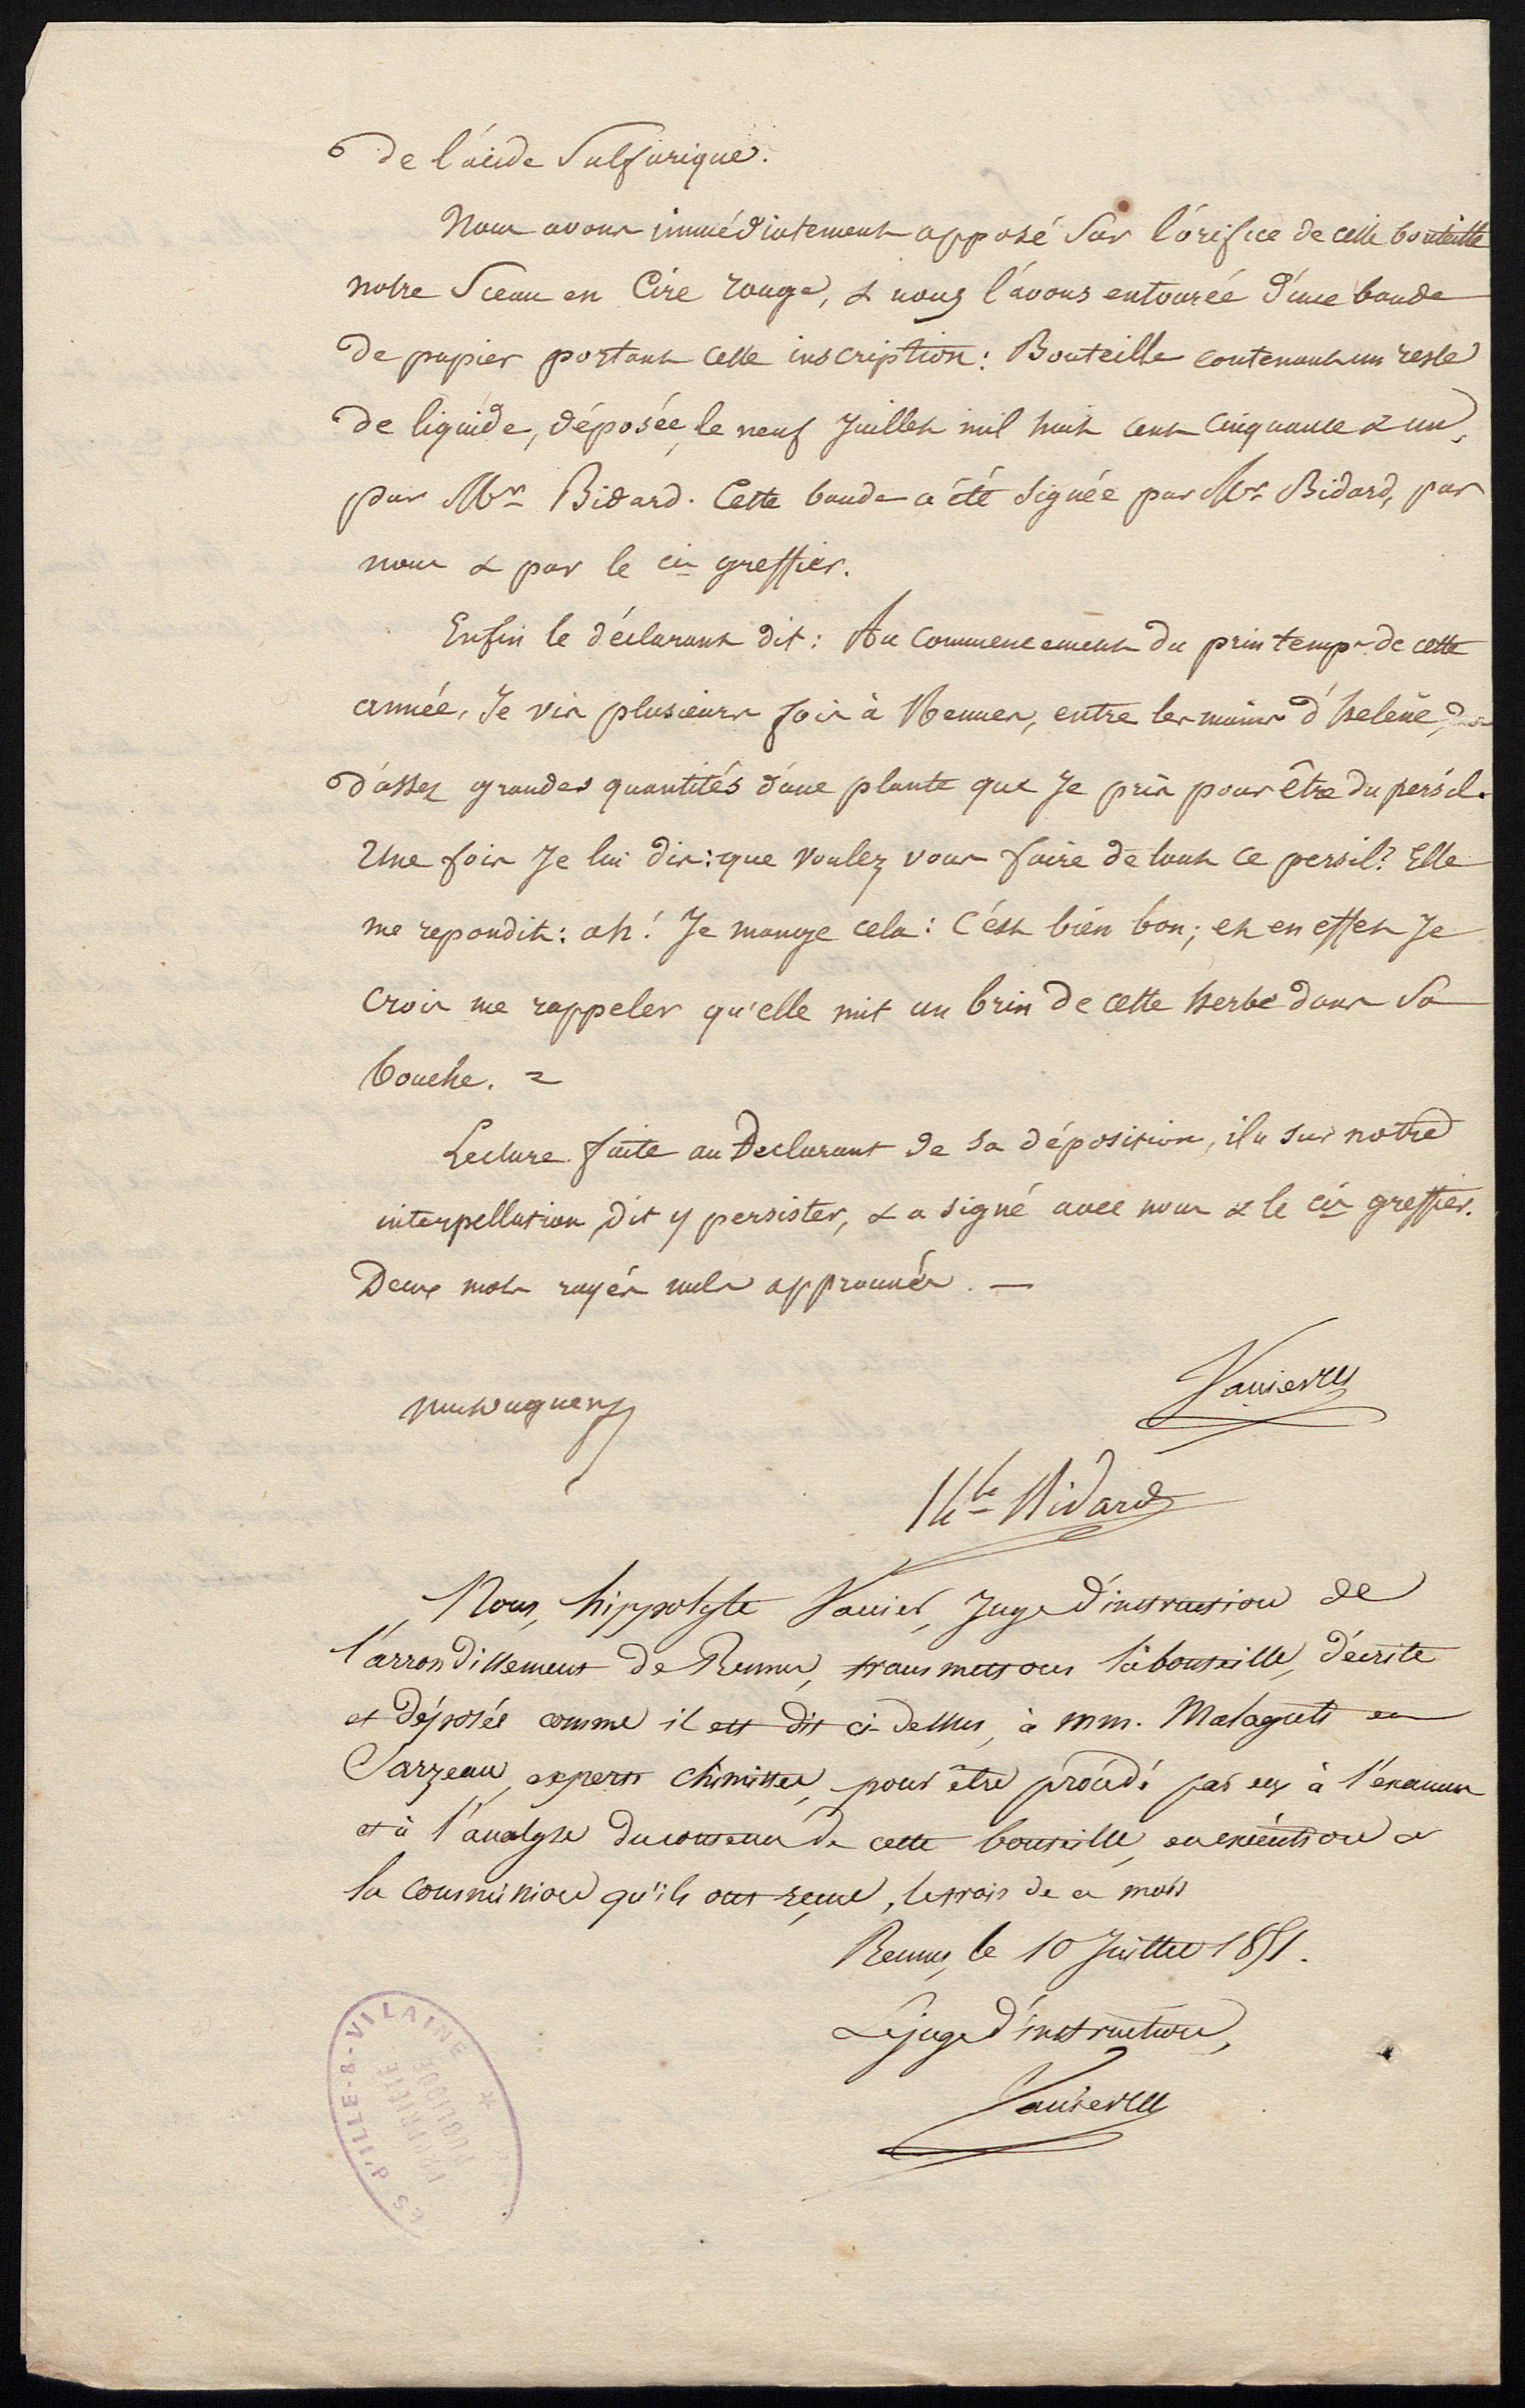 de l'acide Sulfurique.
Nous avons immédiatement apposé Sur l'orifice de cette bouteille
notre Sceau en Cire rouge, & nous l'avons entourée d'une bande
de papier portant cette inscription : Bouteille contenant un reste
de liquide, déposée, le neuf Juillet mil huit cent cinquante & un,
par Mr Bidard. Cette bande a été signée par Mr Bidard, par
nous & par le cis greffier.
Enfin le déclarant dit : Au commencement du printemps de cette
année, Je vis plusieurs fois à Rennes, entre les mains d'helène,
d'assez grandes quantités d'une plante que Je pris pour être du persil.
Une fois Je lui dis : que voulez vous faire de tout ce persil ? Elle
me repondit : ah ! Je mange cela : C'est bien bon ; et en effet Je
crois me rappeler qu'elle mit un brin de cette herbe dans Sa
bouche. =
Lecture faite au Declarant de Sa déposition, il a sur notre
interpellation, dit y persister, & a signé avec nous & le cis greffier.
Deux mots rayés nuls approuvés. —
Vannier
Hte Bidard
Nous, hippolyte Vannier, Juge d'instruction de
l'arrondissement de Rennes, transmettons la bouteille, décrite
et déposée comme il est dit ci-dessus, à mm. Malaguti et
Sarzeau, experts chimistes, pour être procédé par eux à l'examen
et à l'analyse du contenu de cette bouteille, en exécution de
la commission qu'ils ont reçue, le trois de ce mois
Rennes, le 10 Juillet 1851.
Le juge d'instruction,
Vannier
ES d'ILLE-&-VILAINE
PROPRIÉTÉ
PUBLIQUE